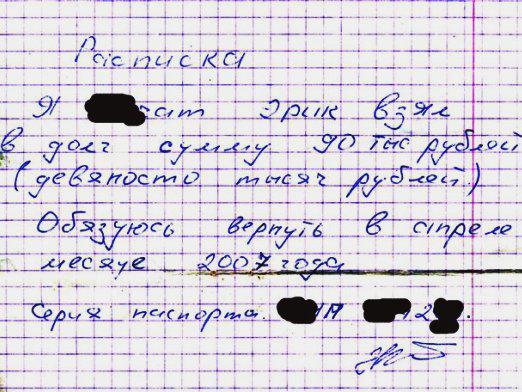 Расписка
Я Эрик взял
в долг сумму 90 тыс рублей
(девяносто тысяч рублей.)
Обязуюсь вернуть в апреле
месяце 2007 года
Серия паспорта.